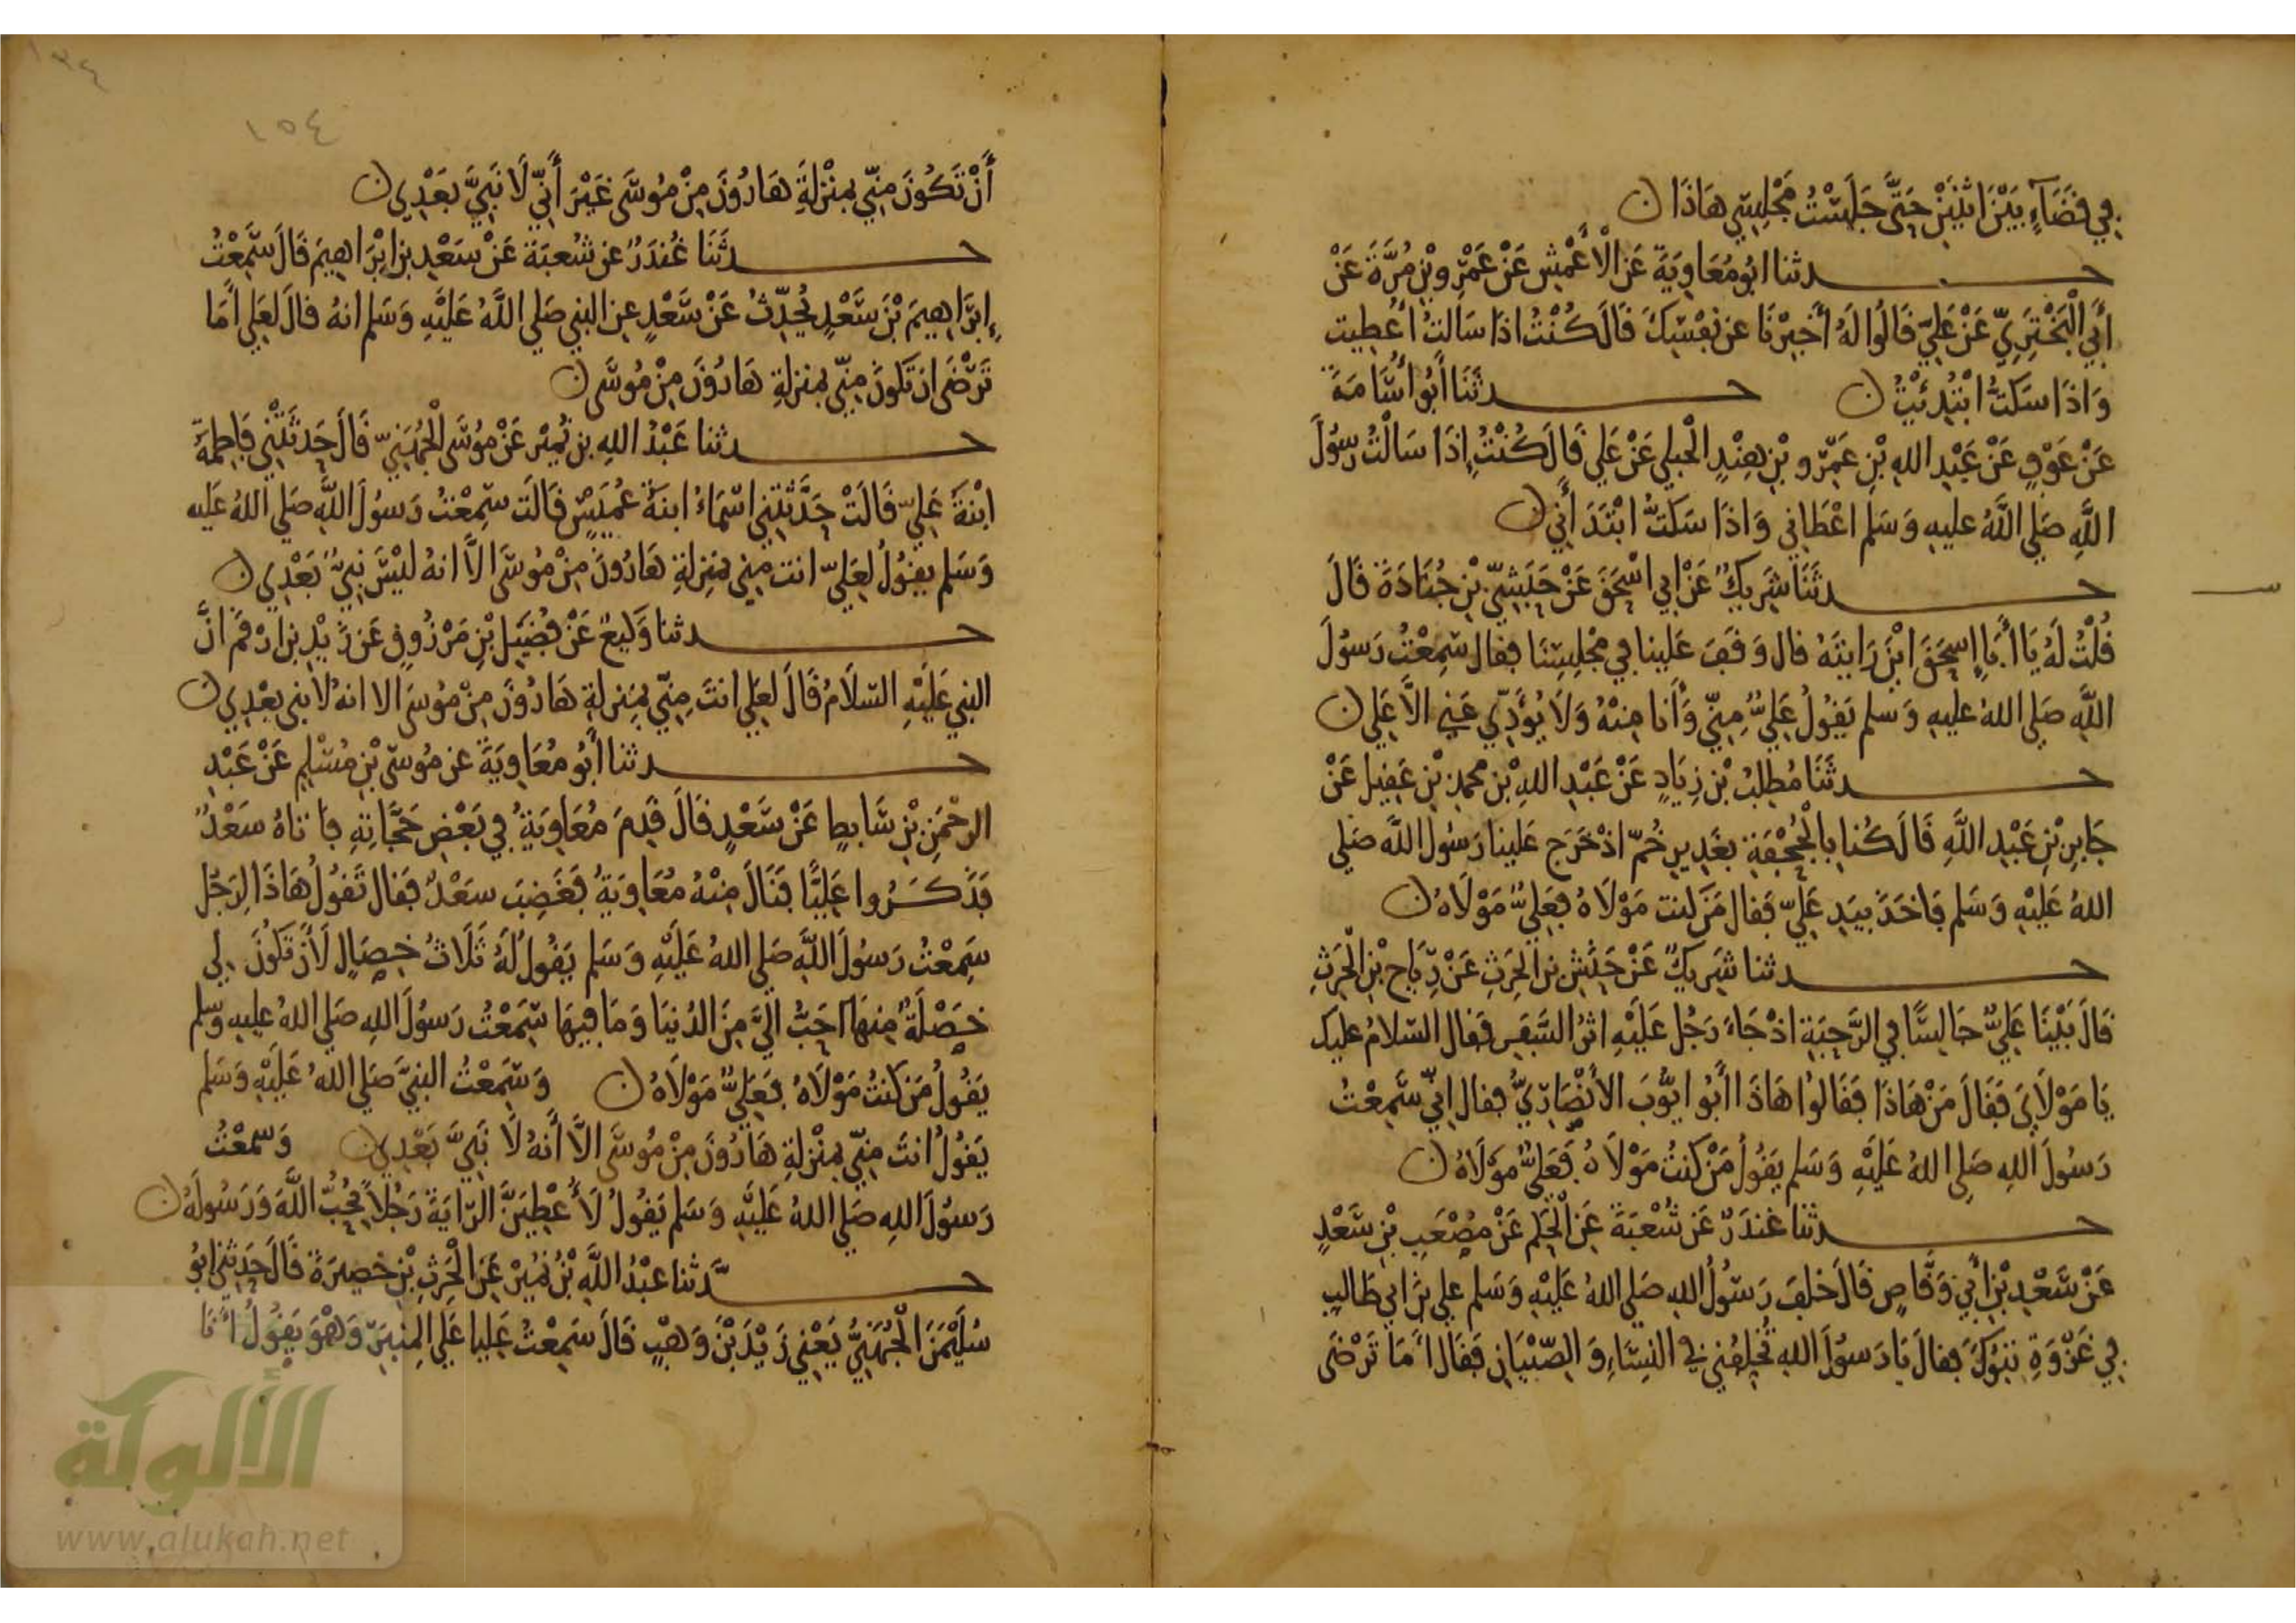 في قَضَآءٍ بَيْنَ اثْنَيْنِ حَتَّى جَلَسْتُ مَجْلِسِي هَاذَا ن
حدثنا ابُو مُعَاوِيَةَ عَنِ الْأَعْمَشِ عَنْ عَمْرِو بْنِ مُرَّةَ عَنْ
أَبِي الْبَخْتَرِيِّ عَنْ عَلِيٍّ قَالُوا لَهُ أَخْبِرْنَا عن نَفْسِكَ قَالَ كُنْتُ اذا سَالتُ أُعْطِيت
وَاذَا سَكَتُّ ابْتُدِئْتُ ن حدثَنَا أَبُو أُسَامَةَ
عَنْ عَوْفٍ عَنْ عَبْدِ اللهِ بْنِ عَمْرِو بْنِ هِنْدٍ الْجملي عَنْ عَلي قَالَ كُنْتُ إِذَا سَالْتُ رَسُولَ
اللَّهِ صَلى اللَّهُ عليهِ وَسَلم اعْطَاني وَاذَا سَكَتُّ ابْتَدَأَنِي ن
حدثَنَا شَرِيكٌ عَنْ ابي اسْحَقَ عَنْ حَبَشِيِّ بْنِ جُنَادَةَ قَالَ
قُلْتُ لَهُ يَا أَبَا إِسحَقَ ايْنَ رَايتَهُ قال وَقَفَ عَلَينا في مَجْلِسِنَا فقال سَمِعْتُ رَسُولَ
اللَّهِ صَلى اللهُ عليهِ وَسلم يَقُولُ عَلِيٌّ مِنِّي وَأَنا مِنْهُ وَلَا يُؤَدِّي عَنِي الَّا عَلي ن
حدثَنَا مُطلِبُ بْن زِيَادٍ عَنْ عَبْدِ اللهِ بْن محمد بْنِ عَقيل عَنْ
جَابِرِ بْنِ عَبْدِ اللَّهِ قَالَ كُنا بِالْجُحْفَةِ بغَدِيرِ خُمّ اذْ خَرَجَ عَلينا رَسُولُ اللَّه صَلى
اللهُ عَلَيْهِ وَسَلم فَاخَذَ بيَدِ عَلِيّ فَقال مَنْ كنت مَوْلَاهُ فَعَلِيٌّ مَوْلَاهُ ن
حدثنا شَرِيكٌ عَنْ حَنَشِ بْنِ الْحَرِثِ عَنْ رِّيَاحِ بْنِ الْحَرِثِ
قَالَ بَيْنَا عَلِيٌّ جَالِسًا في الرَّحَبَةِ اذْ جَاءَ رَجُل عَلَيْهِ اثرُ السَّفَرِ فَقال السَّلامُ عليك
يَا مَوْلَايَ فَقَالَ مَنْ هَاذَا فَقَالوُا هَاذَا أَبُو ايُّوبَ الأَنْصَارِيُّ فقال إِنِّي سَمِعْتُ
رَسُولَ اللهِ صَلى اللهُ عَلَيْهِ وَسَلم يَقُولُ مَنْ كنتُ مَوْلَاهُ فَعَلِيٌّ مَوْلَاهُ ن
حدثنا غُنْدَرٌ عَن شُعْبَةَ عَنِ الْحَكَم عَنْ مُصْعَبِ بْنِ سَعْدٍ
عَنْ سَعْدِ بْنِ أَبِي وَقَّاصٍ قَالَ خَلفَ رَسُولُ اللهِ صَلى اللهُ عَلَيْهِ وَسَلم علي بنَ ابي طَالبٍ
في غَزْوَةِ تَبُوكَ فقالَ يَا رَسوُلَ الله تُخَلِفُنِي في النِسَاءِ وَ الصِّبْيَانِ فَقَالَ أَمَا تَرْضَى
١٣٤
١٥٤
أَنْ تَكُونَ مِنِّي بِمَنْزِلَةِ هَارُونَ مِنْ مُوسَى غَيْرَ أَنَّهُ لَا نَبِيَّ بَعْدِي ن
حدثَنَا غُنْدَرٌ عن شُعبَةَ عَنْ سَعْدِ بن ابْرَاهِيمَ قَالَ سَمِعْتُ
إِبرَاهِيمَ بْنَ سَعْدٍ يُحَدِّثُ عَنْ سَعْدٍ عن النبي صَلى اللَّهُ عَلَيْهِ وَسَلم انهُ قالَ لعَلي أَمَا
تَرْضَى ان تَكونَ مِنِّي بمنزلةِ هَارُونَ مِنْ مُوسَى ن
حدثنا عَبْدُ اللهِ بن نُمَيْر عَنْ مُوسَى الْجُهَنِيّ قَالَ حَدثَتْنِي فَاطِمَةُ
ابْنَةُ عَلِيّ قَالَتْ حَدَّثَتْنِي اسْمَاءُ ابنَةُ عُمَيْسٍ قَالَت سَمِعْتُ رَسُولَ اللَّهِ صَلى اللهُ عَليه
وَسَلم يقُولُ لعَلِيّ انت مِنِي بمَنزِلةِ هَارُونَ مِنْ مُوسَى الَّا انهُ ليْسَ نَبِيٌّ بَعْدِي ن
حدثنا وَكيعٌ عَنْ فُضَيْلِ بْنِ مَرْزُوقٍ عَن زَيْدِ بن ارْقَمَ انَّ
النبي عَلَيْهِ السّلَامُ قَالَ لعَلي انتَ مِنّي بمَنزلةِ هَارُونَ مِنْ مُوسَى الا انهُ لا نبي بعْدِي ن
حدثنا أَبُو مُعَاوِيَةَ عن مُوسَى بْنِ مُسْلِمٍ عَنْ عَبْدِ
الرحْمَنِ بْنِ سَابطٍ عَنْ سَعْدٍ قَالَ قَدِمَ مُعَاوِيَةُ في بَعْضِ حَجَّاتِهِ فَاتاهُ سَعْدٌ
فَذَكَرُوا عَلِيًّا فَنَالَ مِنْهُ مُعَاوِيَةُ فَغَضِبَ سَعْدٌ فقال تَقولُ هَاذَا لِرَجُل
سَمِعْتُ رَسُولَ اللَّهِ صَلى اللهُ عَلَيْهِ وَسَلم يَقُولُ لَهُ ثَلَاثُ خِصَالٍ لَأَنْ تَكُونَ لي
خَصْلَةٌ مِنهَا أَحَبُّ الَيَّ مِنَ الدُنيَا وَمَا فيهَا سَمِعْتُ رَسُولَ اللهِ صَلى اللهُ عليهِ وَسلم
يَقُولُ مَن كنتُ مَوْلَاهُ فعَلِيٌّ مَوْلَاهُ ن وَسَمِعْتُ النبِيَّ صَلي اللهُ عَلَيْهِ وَسَلم
يَقُولُ انتَ مِنّي بمَنْزلةِ هَارُونَ مِنْ مُوسَى الَّا أَنهُ لَا نَبِيَّ بَعْدِي ن وَسمعْتُ
رَسوُلَ اللهِ صَلي اللهُ عَلَيْهِ وَسَلم يَقُولُ لَأُعْطِيَنَّ الرّايَةَ رَجُلاً يُحِبُّ اللَّهَ وَرَسُولَهُ ن
حدثنا عبْدُ اللَّهِ بْنُ نُمَيْر عَنِ الْحَرِثِ بْنِ حَصِيرَةَ قَالَ حَدثني ابُو
سُلَيْمَنَ الْجُهَنِيُّ يَعْنِي زَيْدَ بْنَ وَهْبٍ قَالَ سَمِعْتُ عَليا عَلَي المِنبَرِ وَهْوَ يَقُولُ أَنَا
الألوكة
www.alukah.net